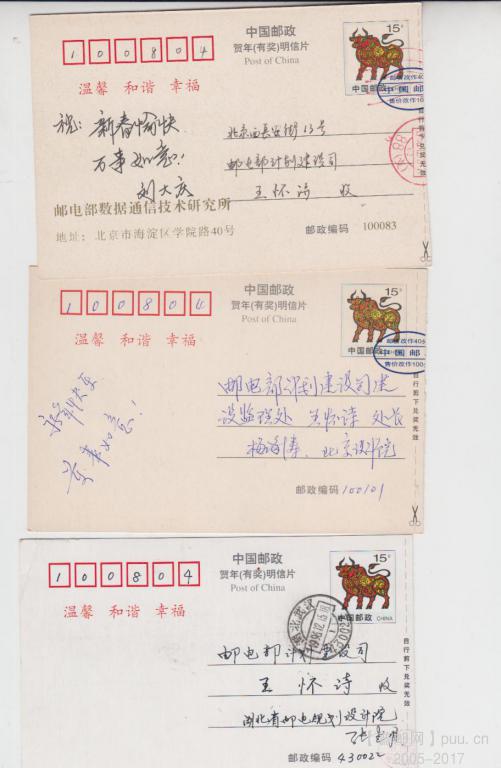 中国邮政
贺年(有奖)明信片
Post of China
15分
中国邮政 CHINA
100804
温馨 和谐 幸福
祝:新春愉快
万事如意!
刘大庆
北京西长安街13号
邮电部计划建设司
王怀诗 收
邮电部数据通信技术研究所
地址:北京市海淀区学院路40号
邮政编码 100083
中国邮政
贺年(有奖)明信片
Post of China
15分
中国邮政
100804
温馨 和谐 幸福
新年快乐
万事如意!
邮电部计划建设司建
设监理处 王怀诗 处长
北京设计院
邮政编码 100101
自行剪下兑奖无效
中国邮政
贺年(有奖)明信片
Post of China
15分
中国邮政 CHINA
100804
温馨 和谐 幸福
邮电部计划建设司
王怀诗 收
湖北省邮电规划设计院
邮政编码 430022
自行剪下兑奖无效
puu.cn
2005-2017